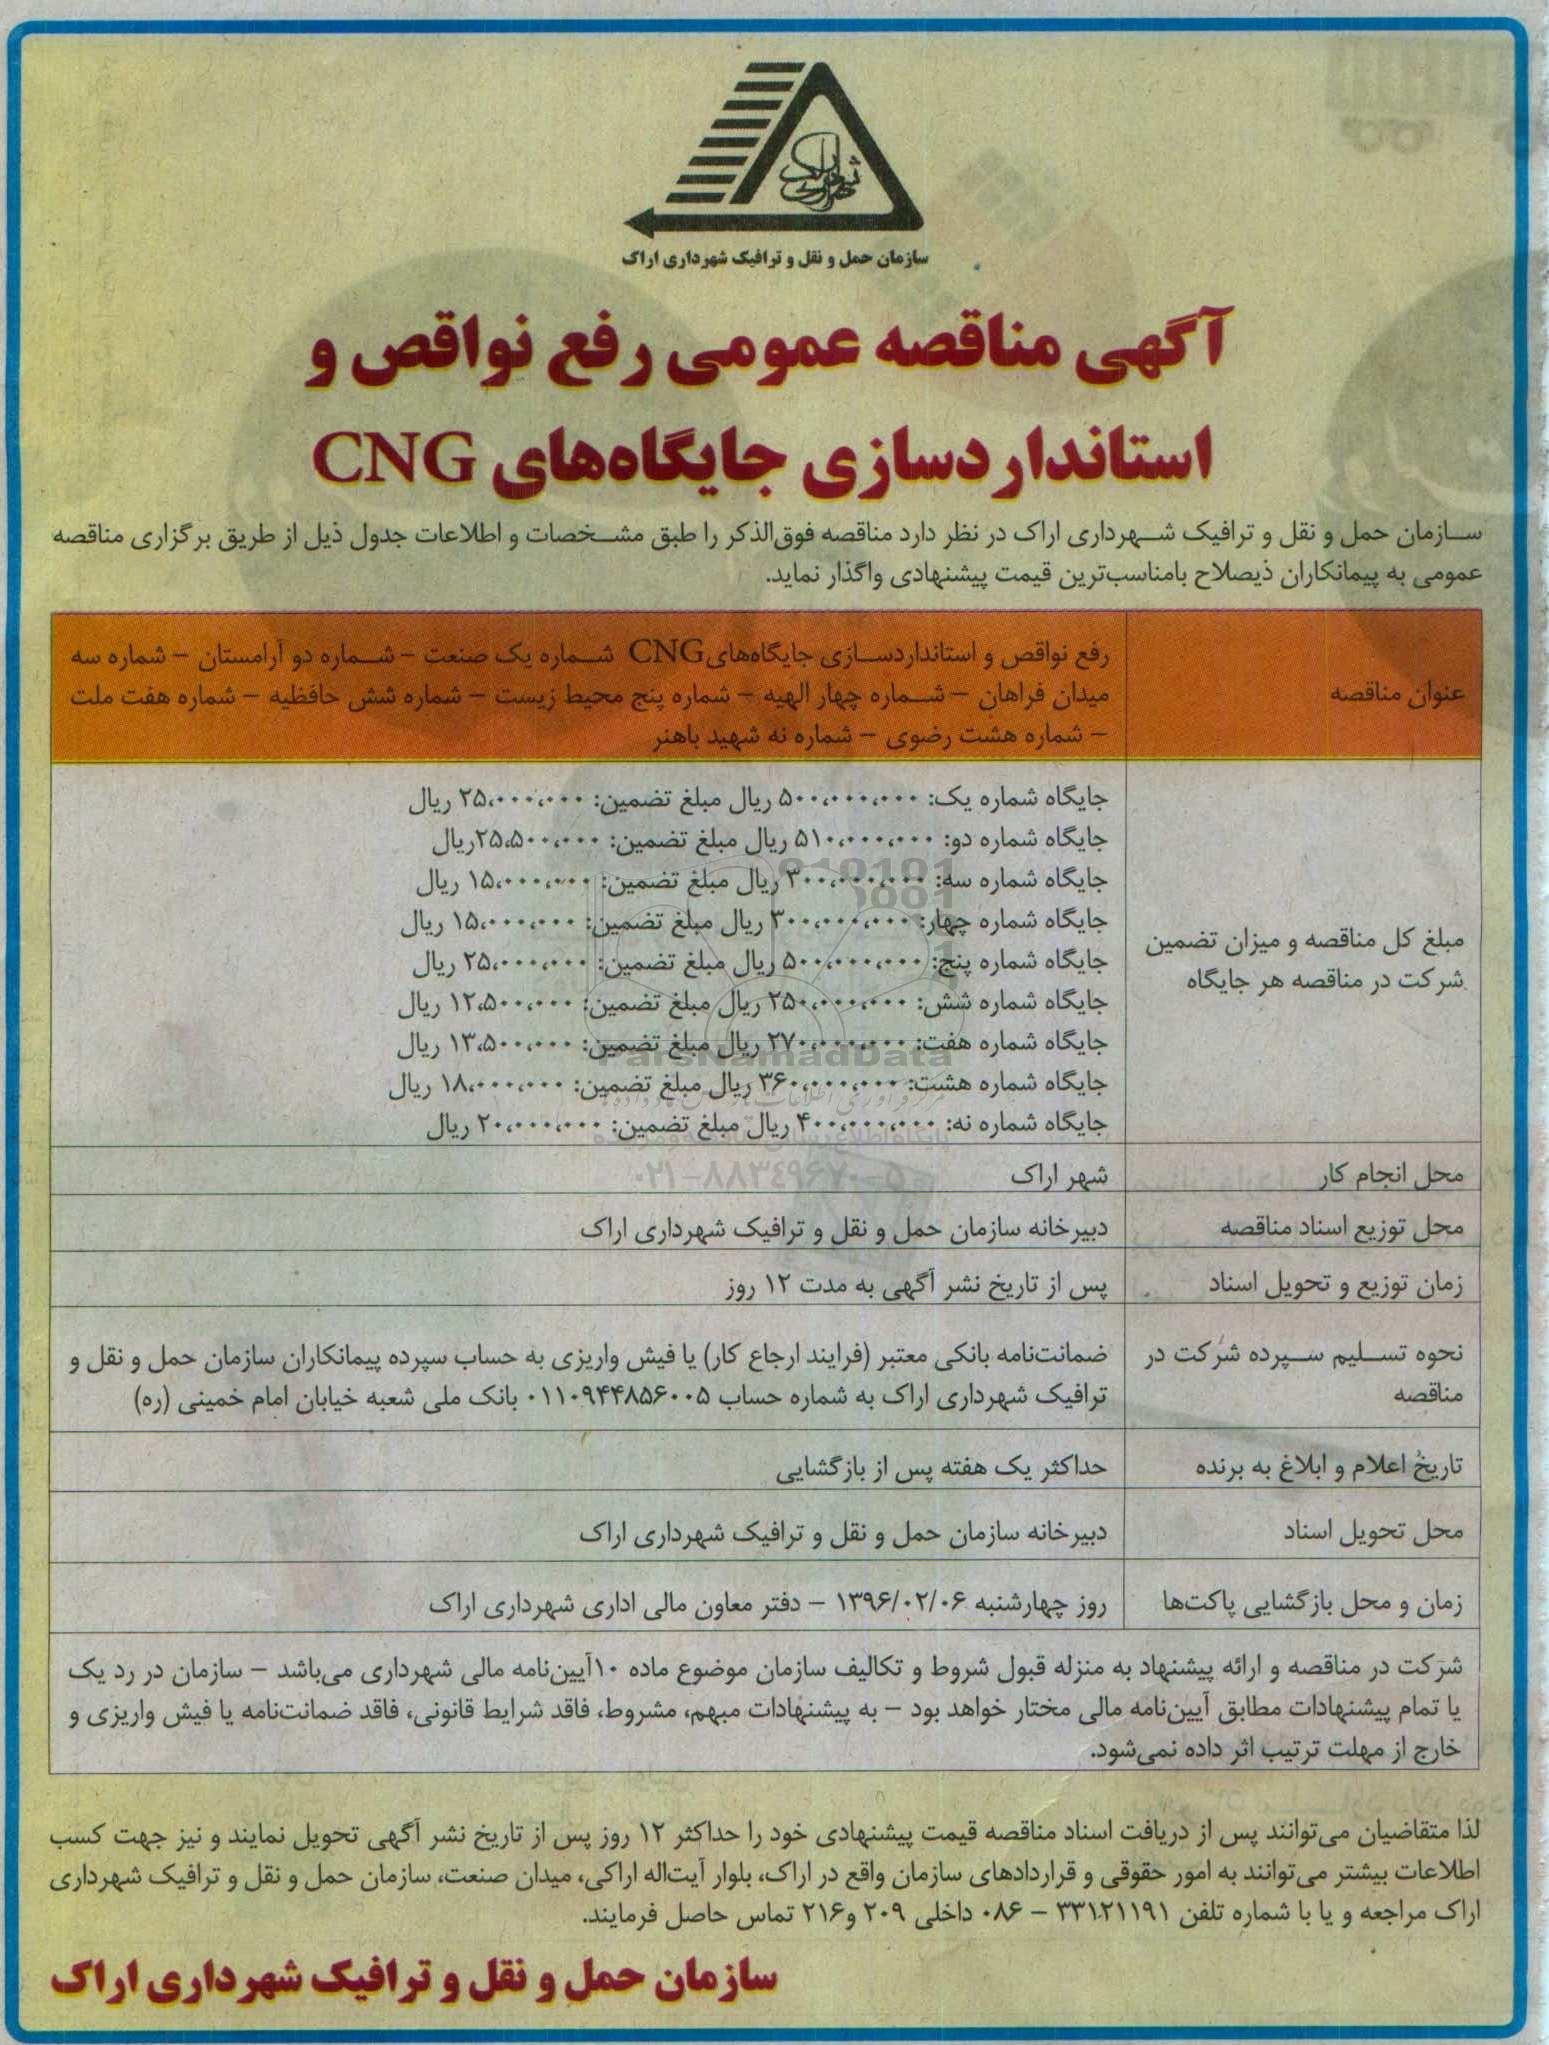 شهرداری اراک
سازمان حمل و نقل و ترافیک شهرداری اراک
آگهی مناقصه عمومی رفع نواقص و
استانداردسازی جایگاه‌های CNG
سازمان حمل و نقل و ترافیک شهرداری اراک در نظر دارد مناقصه فوق‌الذکر را طبق مشخصات و اطلاعات جدول ذیل از طریق برگزاری مناقصه
عمومی به پیمانکاران ذیصلاح بامناسب‌ترین قیمت پیشنهادی واگذار نماید.
عنوان مناقصه
رفع نواقص و استانداردسازی جایگاه‌های CNG شماره یک صنعت – شماره دو آرامستان – شماره سه
میدان فراهان – شماره چهار الهیه – شماره پنج محیط زیست – شماره شش حافظیه – شماره هفت ملت
– شماره هشت رضوی – شماره نه شهید باهنر
مبلغ کل مناقصه و میزان تضمین
شرکت در مناقصه هر جایگاه
جایگاه شماره یک: ۵۰۰،۰۰۰،۰۰۰ ریال مبلغ تضمین: ۲۵،۰۰۰،۰۰۰ ریال
جایگاه شماره دو: ۵۱۰،۰۰۰،۰۰۰ ریال مبلغ تضمین: ۲۵،۵۰۰،۰۰۰ریال
جایگاه شماره سه: ۳۰۰،۰۰۰،۰۰۰ ریال مبلغ تضمین: ۱۵،۰۰۰،۰۰۰ ریال
جایگاه شماره چهار: ۳۰۰،۰۰۰،۰۰۰ ریال مبلغ تضمین: ۱۵،۰۰۰،۰۰۰ ریال
جایگاه شماره پنج: ۵۰۰،۰۰۰،۰۰۰ ریال مبلغ تضمین: ۲۵،۰۰۰،۰۰۰ ریال
جایگاه شماره شش: ۲۵۰،۰۰۰،۰۰۰ ریال مبلغ تضمین: ۱۲،۵۰۰،۰۰۰ ریال
جایگاه شماره هفت: ۲۷۰،۰۰۰،۰۰۰ ریال مبلغ تضمین: ۱۳،۵۰۰،۰۰۰ ریال
جایگاه شماره هشت: ۳۶۰،۰۰۰،۰۰۰ ریال مبلغ تضمین: ۱۸،۰۰۰،۰۰۰ ریال
جایگاه شماره نه: ۴۰۰،۰۰۰،۰۰۰ ریال مبلغ تضمین: ۲۰،۰۰۰،۰۰۰ ریال
ParsNamadData
۰۲۱–۸۸۳۴۹۶۷۰–۵
محل انجام کار
شهر اراک
محل توزیع اسناد مناقصه
دبیرخانه سازمان حمل و نقل و ترافیک شهرداری اراک
زمان توزیع و تحویل اسناد
پس از تاریخ نشر آگهی به مدت ۱۲ روز
نحوه تسلیم سپرده شرکت در
مناقصه
ضمانت‌نامه بانکی معتبر (فرایند ارجاع کار) یا فیش واریزی به حساب سپرده پیمانکاران سازمان حمل و نقل و
ترافیک شهرداری اراک به شماره حساب ۰۱۱۰۹۴۴۸۵۶۰۰۵ بانک ملی شعبه خیابان امام خمینی (ره)
تاریخ اعلام و ابلاغ به برنده
حداکثر یک هفته پس از بازگشایی
محل تحویل اسناد
دبیرخانه سازمان حمل و نقل و ترافیک شهرداری اراک
زمان و محل بازگشایی پاکت‌ها
روز چهارشنبه ۱۳۹۶/۰۲/۰۶ – دفتر معاون مالی اداری شهرداری اراک
شرکت در مناقصه و ارائه پیشنهاد به منزله قبول شروط و تکالیف سازمان موضوع ماده ۱۰آیین‌نامه مالی شهرداری می‌باشد – سازمان در رد یک
یا تمام پیشنهادات مطابق آیین‌نامه مالی مختار خواهد بود – به پیشنهادات مبهم، مشروط، فاقد شرایط قانونی، فاقد ضمانت‌نامه یا فیش واریزی و
خارج از مهلت ترتیب اثر داده نمی‌شود.
لذا متقاضیان می‌توانند پس از دریافت اسناد مناقصه قیمت پیشنهادی خود را حداکثر ۱۲ روز پس از تاریخ نشر آگهی تحویل نمایند و نیز جهت کسب
اطلاعات بیشتر می‌توانند به امور حقوقی و قراردادهای سازمان واقع در اراک، بلوار آیت‌اله اراکی، میدان صنعت، سازمان حمل و نقل و ترافیک شهرداری
اراک مراجعه و یا با شماره تلفن ۳۳۱۲۱۱۹۱ – ۰۸۶ داخلی ۲۰۹ و۲۱۶ تماس حاصل فرمایند.
سازمان حمل و نقل و ترافیک شهرداری اراک